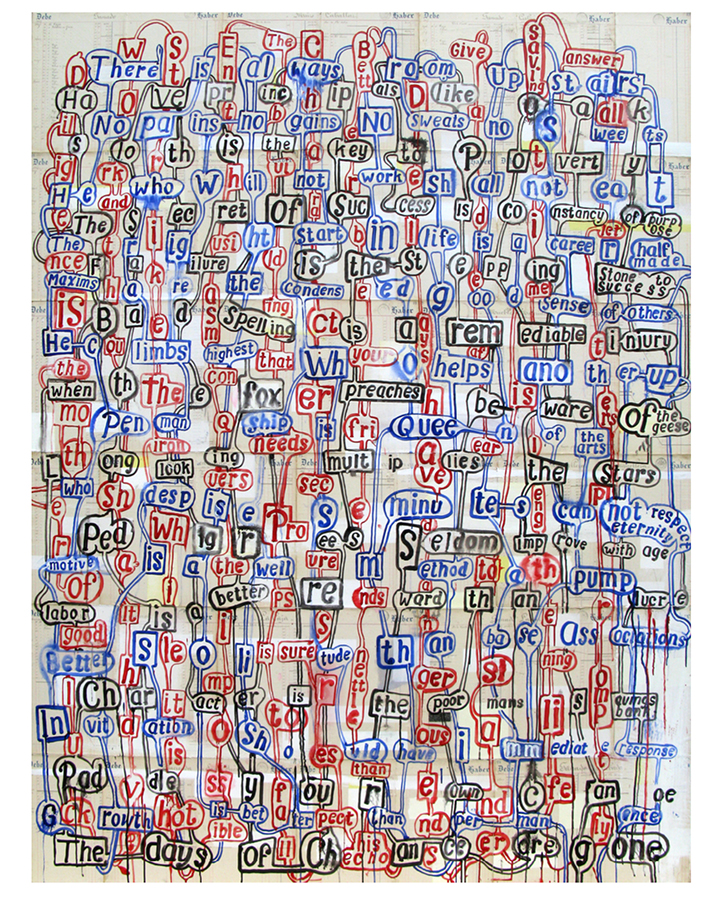 Debe Haber Debe Haber Debe Haber
W S En The C B Give saving answer
D There is al ways Bett ro om UP st airs
Ha O Ve t pr t inc h ip als D like O a all k
ills No pa ins no b gains NO sweats a no S wee ts
S to r th is the a key to P o t vert y
ig rk who W h ill vi not r work e sh all not ea t
He and ec ret Of Suc cess is d co i nstancy of purp ose
e The S i ig usi ht start b in l life is a caree r half made
The
nce F a k ilure ld is the St e e PP ing Stone to success
Maxims h a re the Condens e ed g oo d me sense of others
is B a e d as Spelling ing ct is a rem ediable t i njury
He C ou limbs highest that Wh your o helps ano th er up
the th The e con fox er preaches h be is ware ers Of the geese
when
mo Pen man Q ship is fri Quee n of the arts
th iron needs a ear
L ong look ing mult ip ve lies the Stars
who Sh desp is e vers sec S e mind te s eng can not respect eternity
e Ped Wh ig r Pro ee s S eldom imp rove with age
r a is a the well ure m ethod to a th pump
motive of i better PS re nds ward th an r lucr e
labor It is a
good S le o li is sure tude th an ba se Ass ociations
Better h i r nettle ger si ning o
I Ch ar it act mp er is the poor mans li s omp qumqs bank
In vit d ation o sh to o ous i a um ediat e response
u is es uld have
Pad v dle sh y fa our than e own nd C fe ran oe
G ck rowth hot is bet ter pect r than nd per man ly ence
ible his echo
The days Of ll Ch an s ce er dre g one